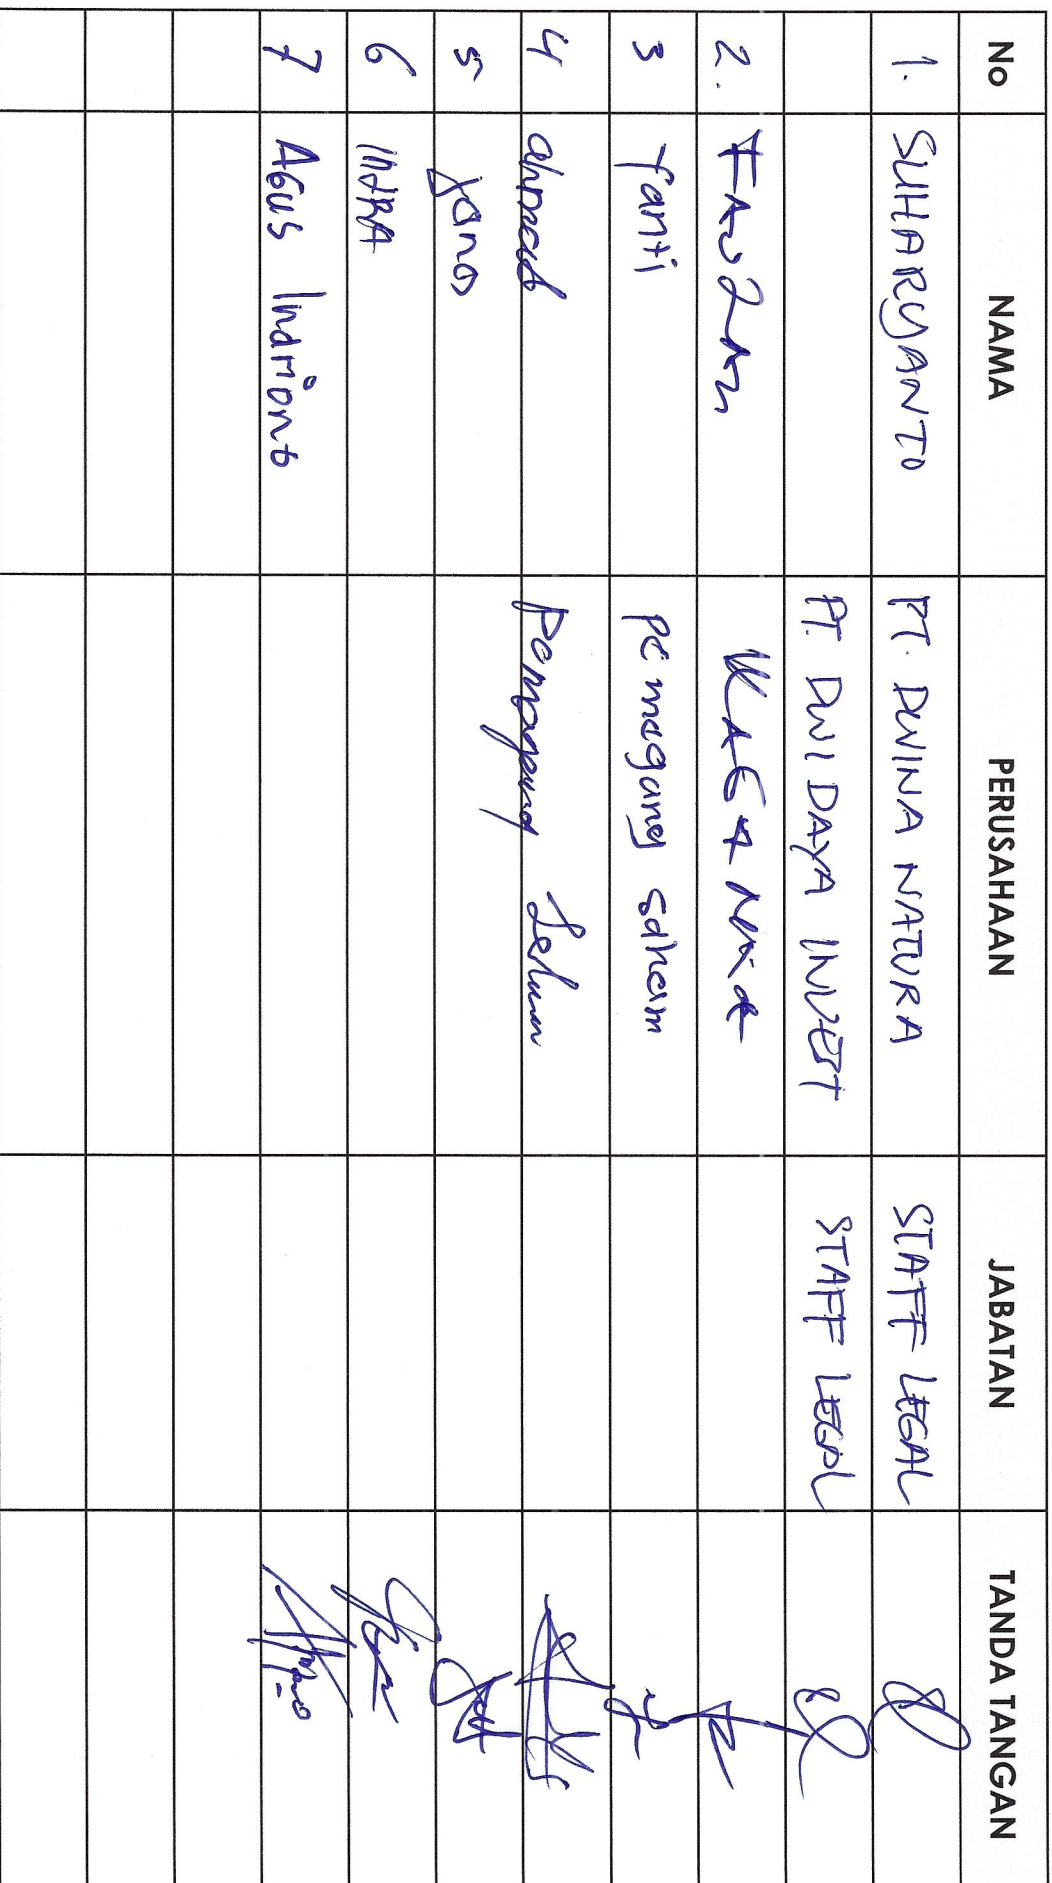 No NAMA PERUSAHAAN JABATAN TANDA TANGAN
1. SUHARYANTO PT. DWINA NATURA STAFF LEGAL
PT. DWI DAYA INVEST STAFF LEGAL
2. FAUZAN
3 fanti pemegang saham
4 ahmad
5
6 INDRA
7 AGUS Indrianto